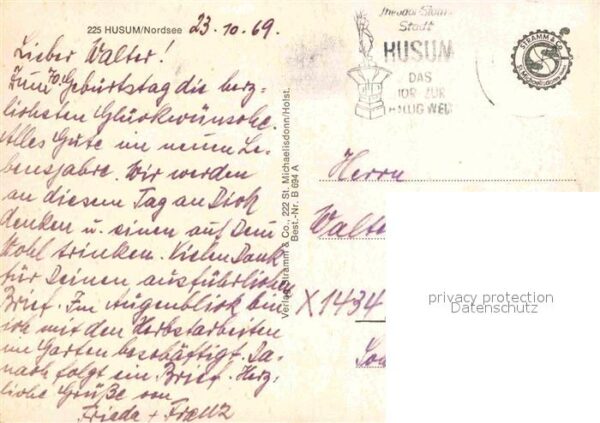 225 HUSUM/Nordsee 23.10.69.
Lieber Walter!
Zum 70. Geburtstag die herz-
lichsten Glückwünsche.
Alles Gute im neuen Le-
bensjahre. Wir werden
an diesem Tag an Dich
denken u. einen auf Dein
Wohl trinken. Vielen Dank
für Deinen ausführlichen
Brief. Im Augenblick bin
ich mit den Herbstarbeiten
im Garten beschäftigt. Da-
nach folgt ein Brief. Herz-
liche Grüße von
Frieda + Franz
Verlag Stramm & Co., 222 St. Michaelisdonn/Holst.
Best.-Nr. B 694 A
Theodor-Storm-
Stadt
HUSUM
DAS
TOR ZUR
HALLIGWELT
STRAMM & CO
St. Michaelisdonn
Herrn
Walte
X1434
privacy protection
Datenschutz